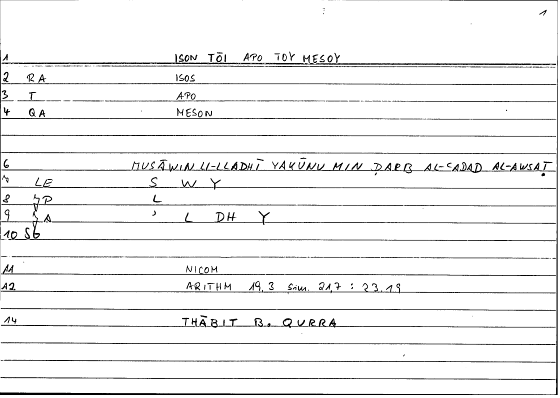 1
1 ISON TŌI APO TOY MESOY
2 RA ISOS
3 T APO
4 QA MESON
6 MUSĀWIN LI-LLADHĪ YAKŪNU MIN ḌARB AL-CADAD AL-AWSAṬ
7 LE S W Y
8 P L
9 A ' L DH Y
10 Sb
11 NICOM
12 ARITHM 19,3 sim. 21,7 : 23.19
14 THĀBIT B. QURRA